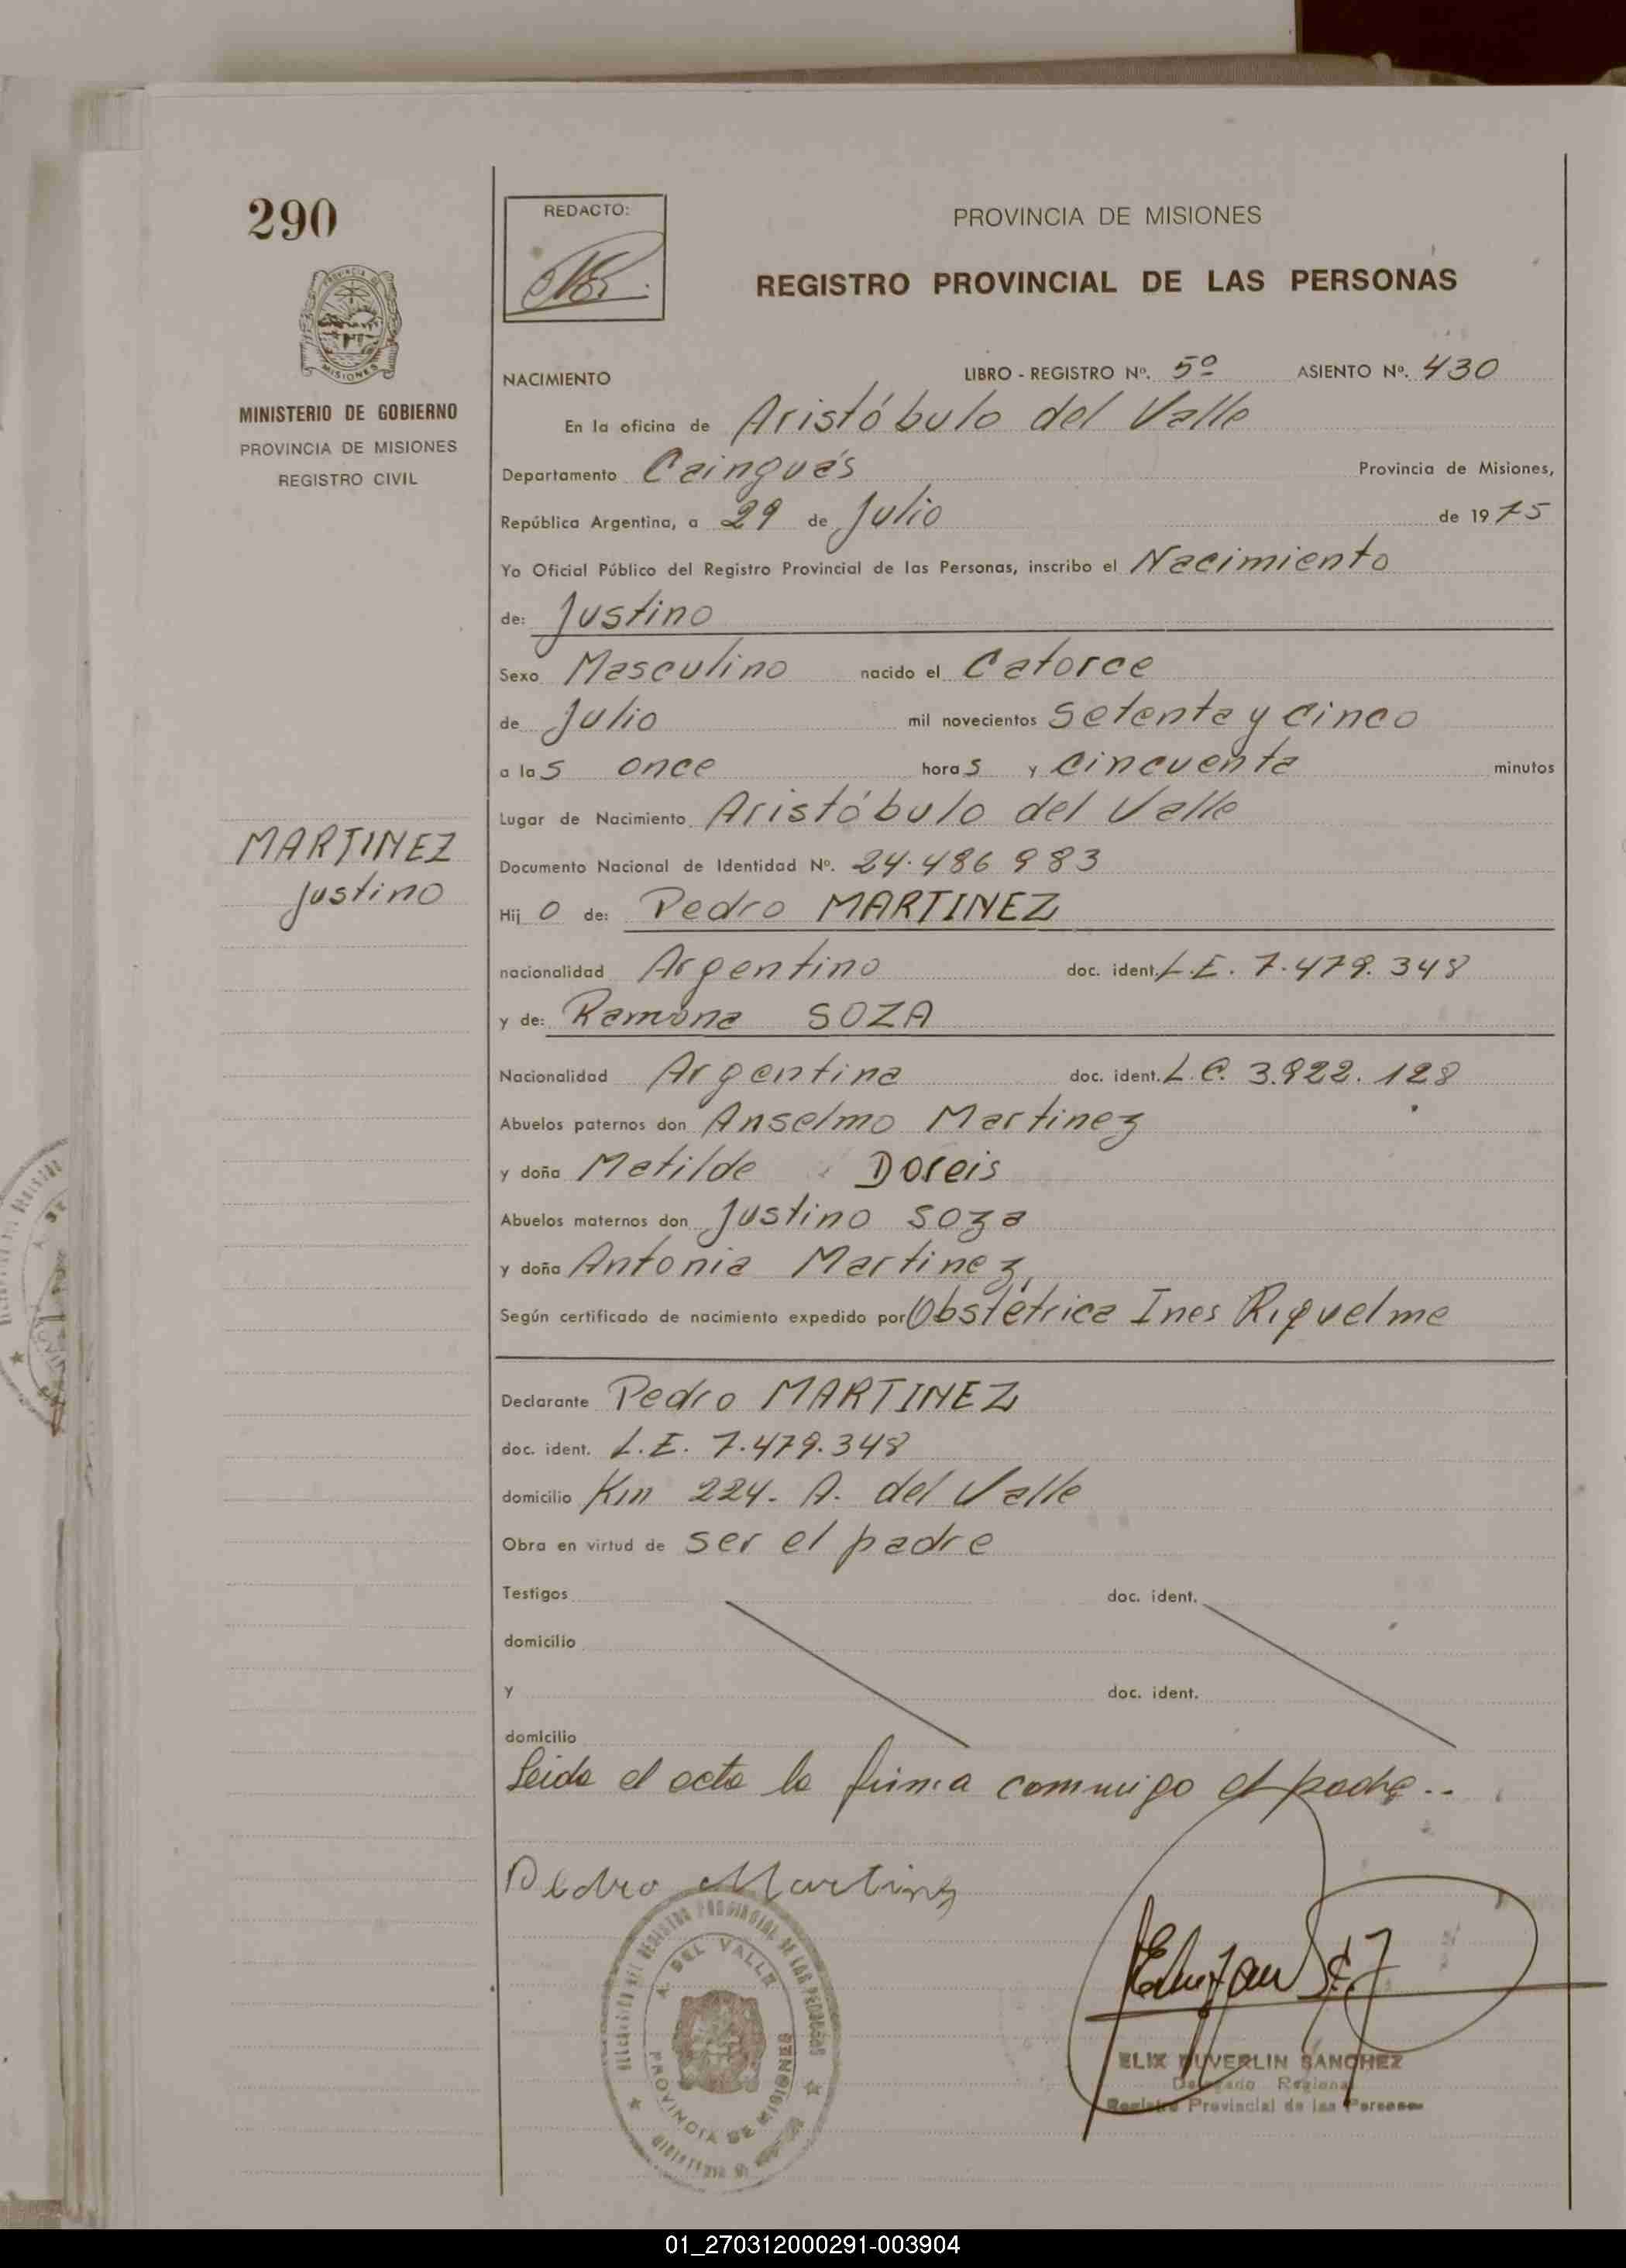 290
PROVINCIA DE
MISIONES
MINISTERIO DE GOBIERNO
PROVINCIA DE MISIONES
REGISTRO CIVIL
MARTINEZ
Justino
REDACTO:
PROVINCIA DE MISIONES
REGISTRO PROVINCIAL DE LAS PERSONAS
NACIMIENTO LIBRO - REGISTRO Nº. 5º ASIENTO Nº. 430
En la oficina de Aristóbulo del Valle
Departamento Cainguás Provincia de Misiones,
República Argentina, a 29 de Julio de 1975
Yo Oficial Público del Registro Provincial de las Personas, inscribo el Nacimiento
de: Justino
Sexo Masculino nacido el Catorce
de Julio mil novecientos Setenta y Cinco
a las once horas y Cincuenta minutos
Lugar de Nacimiento Aristóbulo del Valle
Documento Nacional de Identidad Nº. 24.486 983
Hijo de: Pedro MARTINEZ
nacionalidad Argentino doc. ident. L.E. 7.479.348
y de: Ramona SOZA
Nacionalidad Argentina doc. ident. L.C. 3.922.128
Abuelos paternos don Anselmo Martinez
y doña Matilde Doreis
Abuelos maternos don Justino Soza
y doña Antonia Martinez
Según certificado de nacimiento expedido por Obstétrica Ines Riquelme
Declarante Pedro MARTINEZ
doc. ident. L.E. 7.479.348
domicilio Km 224. A. del Valle
Obra en virtud de ser el padre
Testigos doc. ident.
domicilio
y doc. ident.
domicilio
Leida el acta la firma conmigo el padre..
Pedro Martinez
REGISTRO PROVINCIAL DE LAS PERSONAS
A. DEL VALLE
PROVINCIA DE MISIONES
ELIX DUVERLIN SANCHEZ
Delegado Regional
Registro Provincial de las Personas
01_270312000291-003904